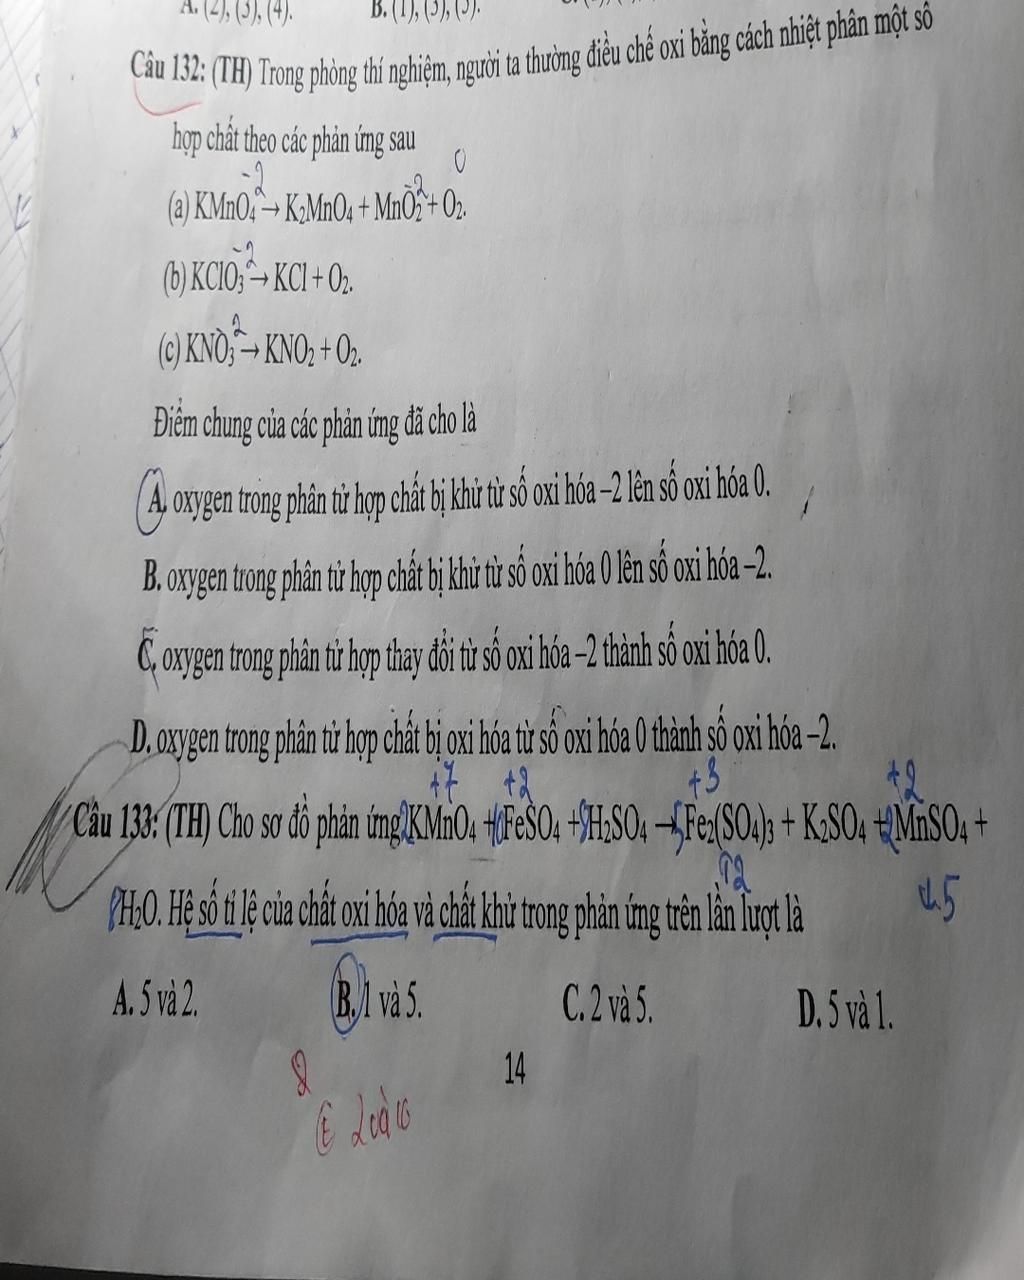 A. (2), (3), (4). B. (1), (3), (5).
Câu 132: (TH) Trong phòng thí nghiệm, người ta thường điều chế oxi bằng cách nhiệt phân một số
hợp chất theo các phản ứng sau
-2 -2 0
(a) KMnO₄ → K₂MnO₄ + MnO₂ + O₂.
-2
(b) KClO₃ → KCl + O₂.
-2
(c) KNO₃ → KNO₂ + O₂.
Điểm chung của các phản ứng đã cho là
A. oxygen trong phân tử hợp chất bị khử từ số oxi hóa –2 lên số oxi hóa 0.
B. oxygen trong phân tử hợp chất bị khử từ số oxi hóa 0 lên số oxi hóa –2.
C. oxygen trong phân tử hợp thay đổi từ số oxi hóa –2 thành số oxi hóa 0.
D. oxygen trong phân tử hợp chất bị oxi hóa từ số oxi hóa 0 thành số oxi hóa –2.
+7 +2 +3 +2
Câu 133: (TH) Cho sơ đồ phản ứng 2KMnO₄ + 10FeSO₄ + 8H₂SO₄ → 5Fe₂(SO₄)₃ + K₂SO₄ + 2MnSO₄ +
↑2 ↓5
8H₂O. Hệ số tỉ lệ của chất oxi hóa và chất khử trong phản ứng trên lần lượt là
A. 5 và 2. B. 1 và 5. C. 2 và 5. D. 5 và 1.
14
2 và 10